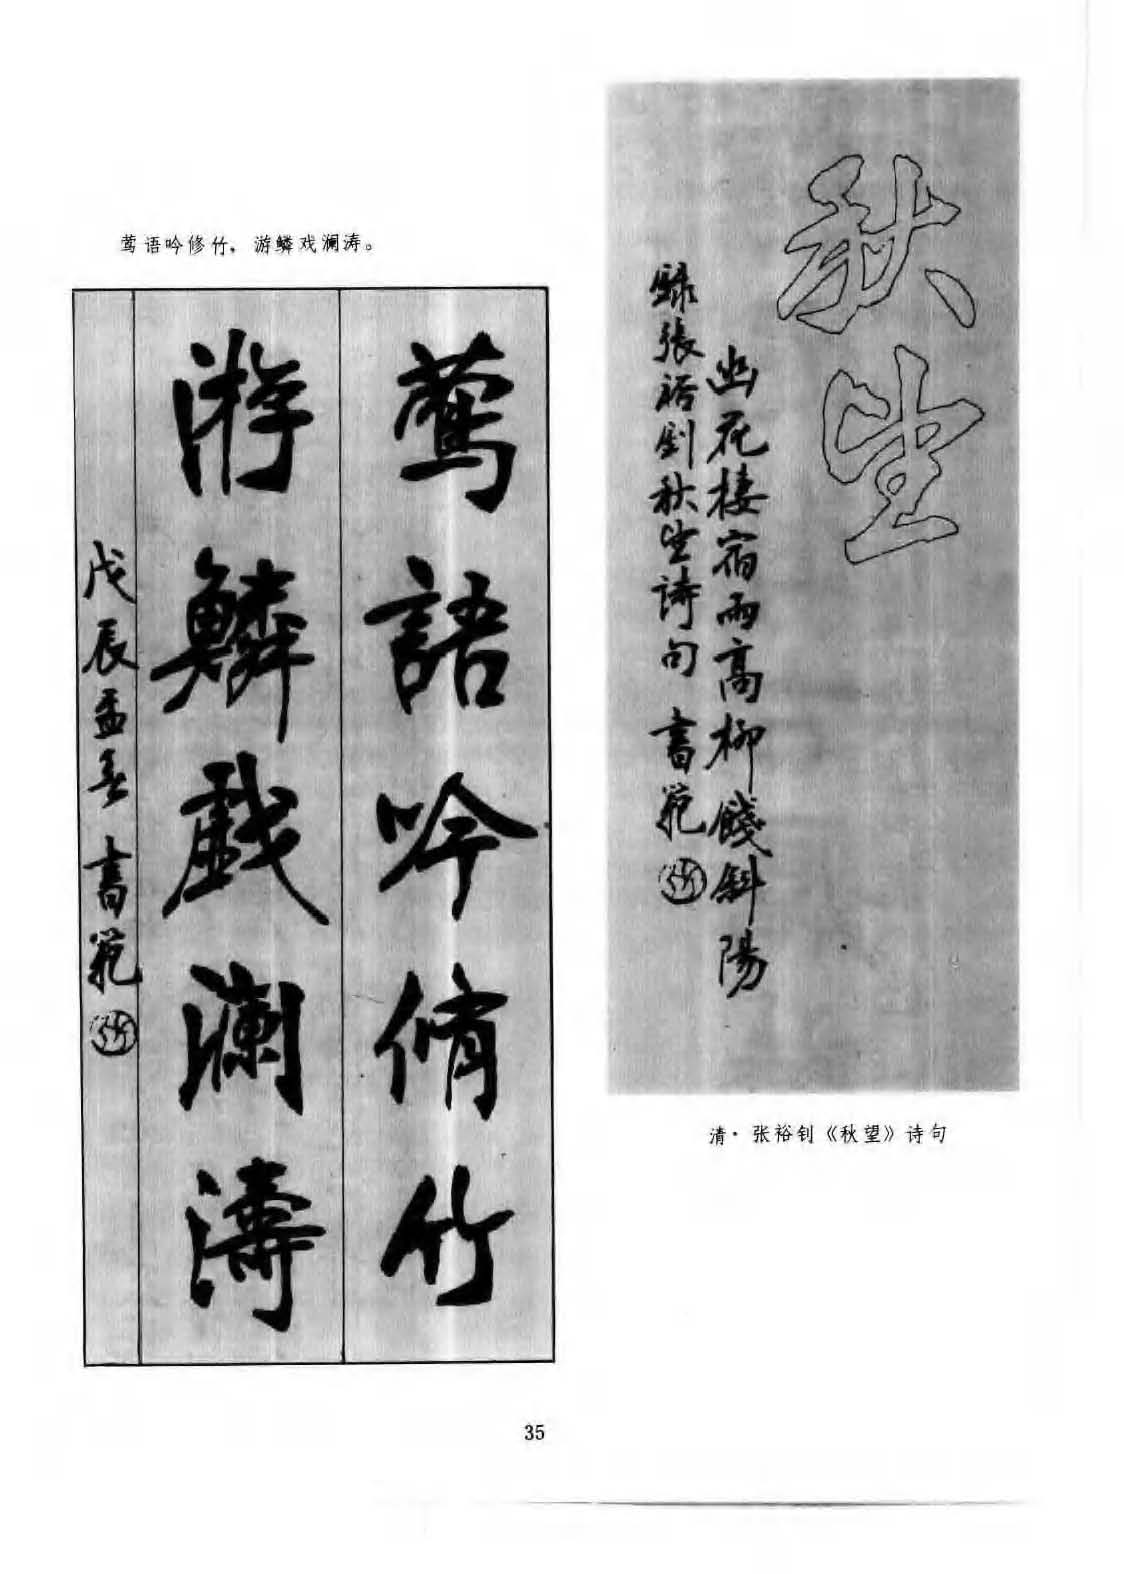 莺语吟修竹，游鳞戏澜涛。
鶯語吟脩竹
游鱗戲瀾濤
戊辰孟春 書範
秋望
幽花棲宿雨高柳餞斜陽
録張裕釗秋望詩句 書範
清·张裕钊《秋望》诗句
35